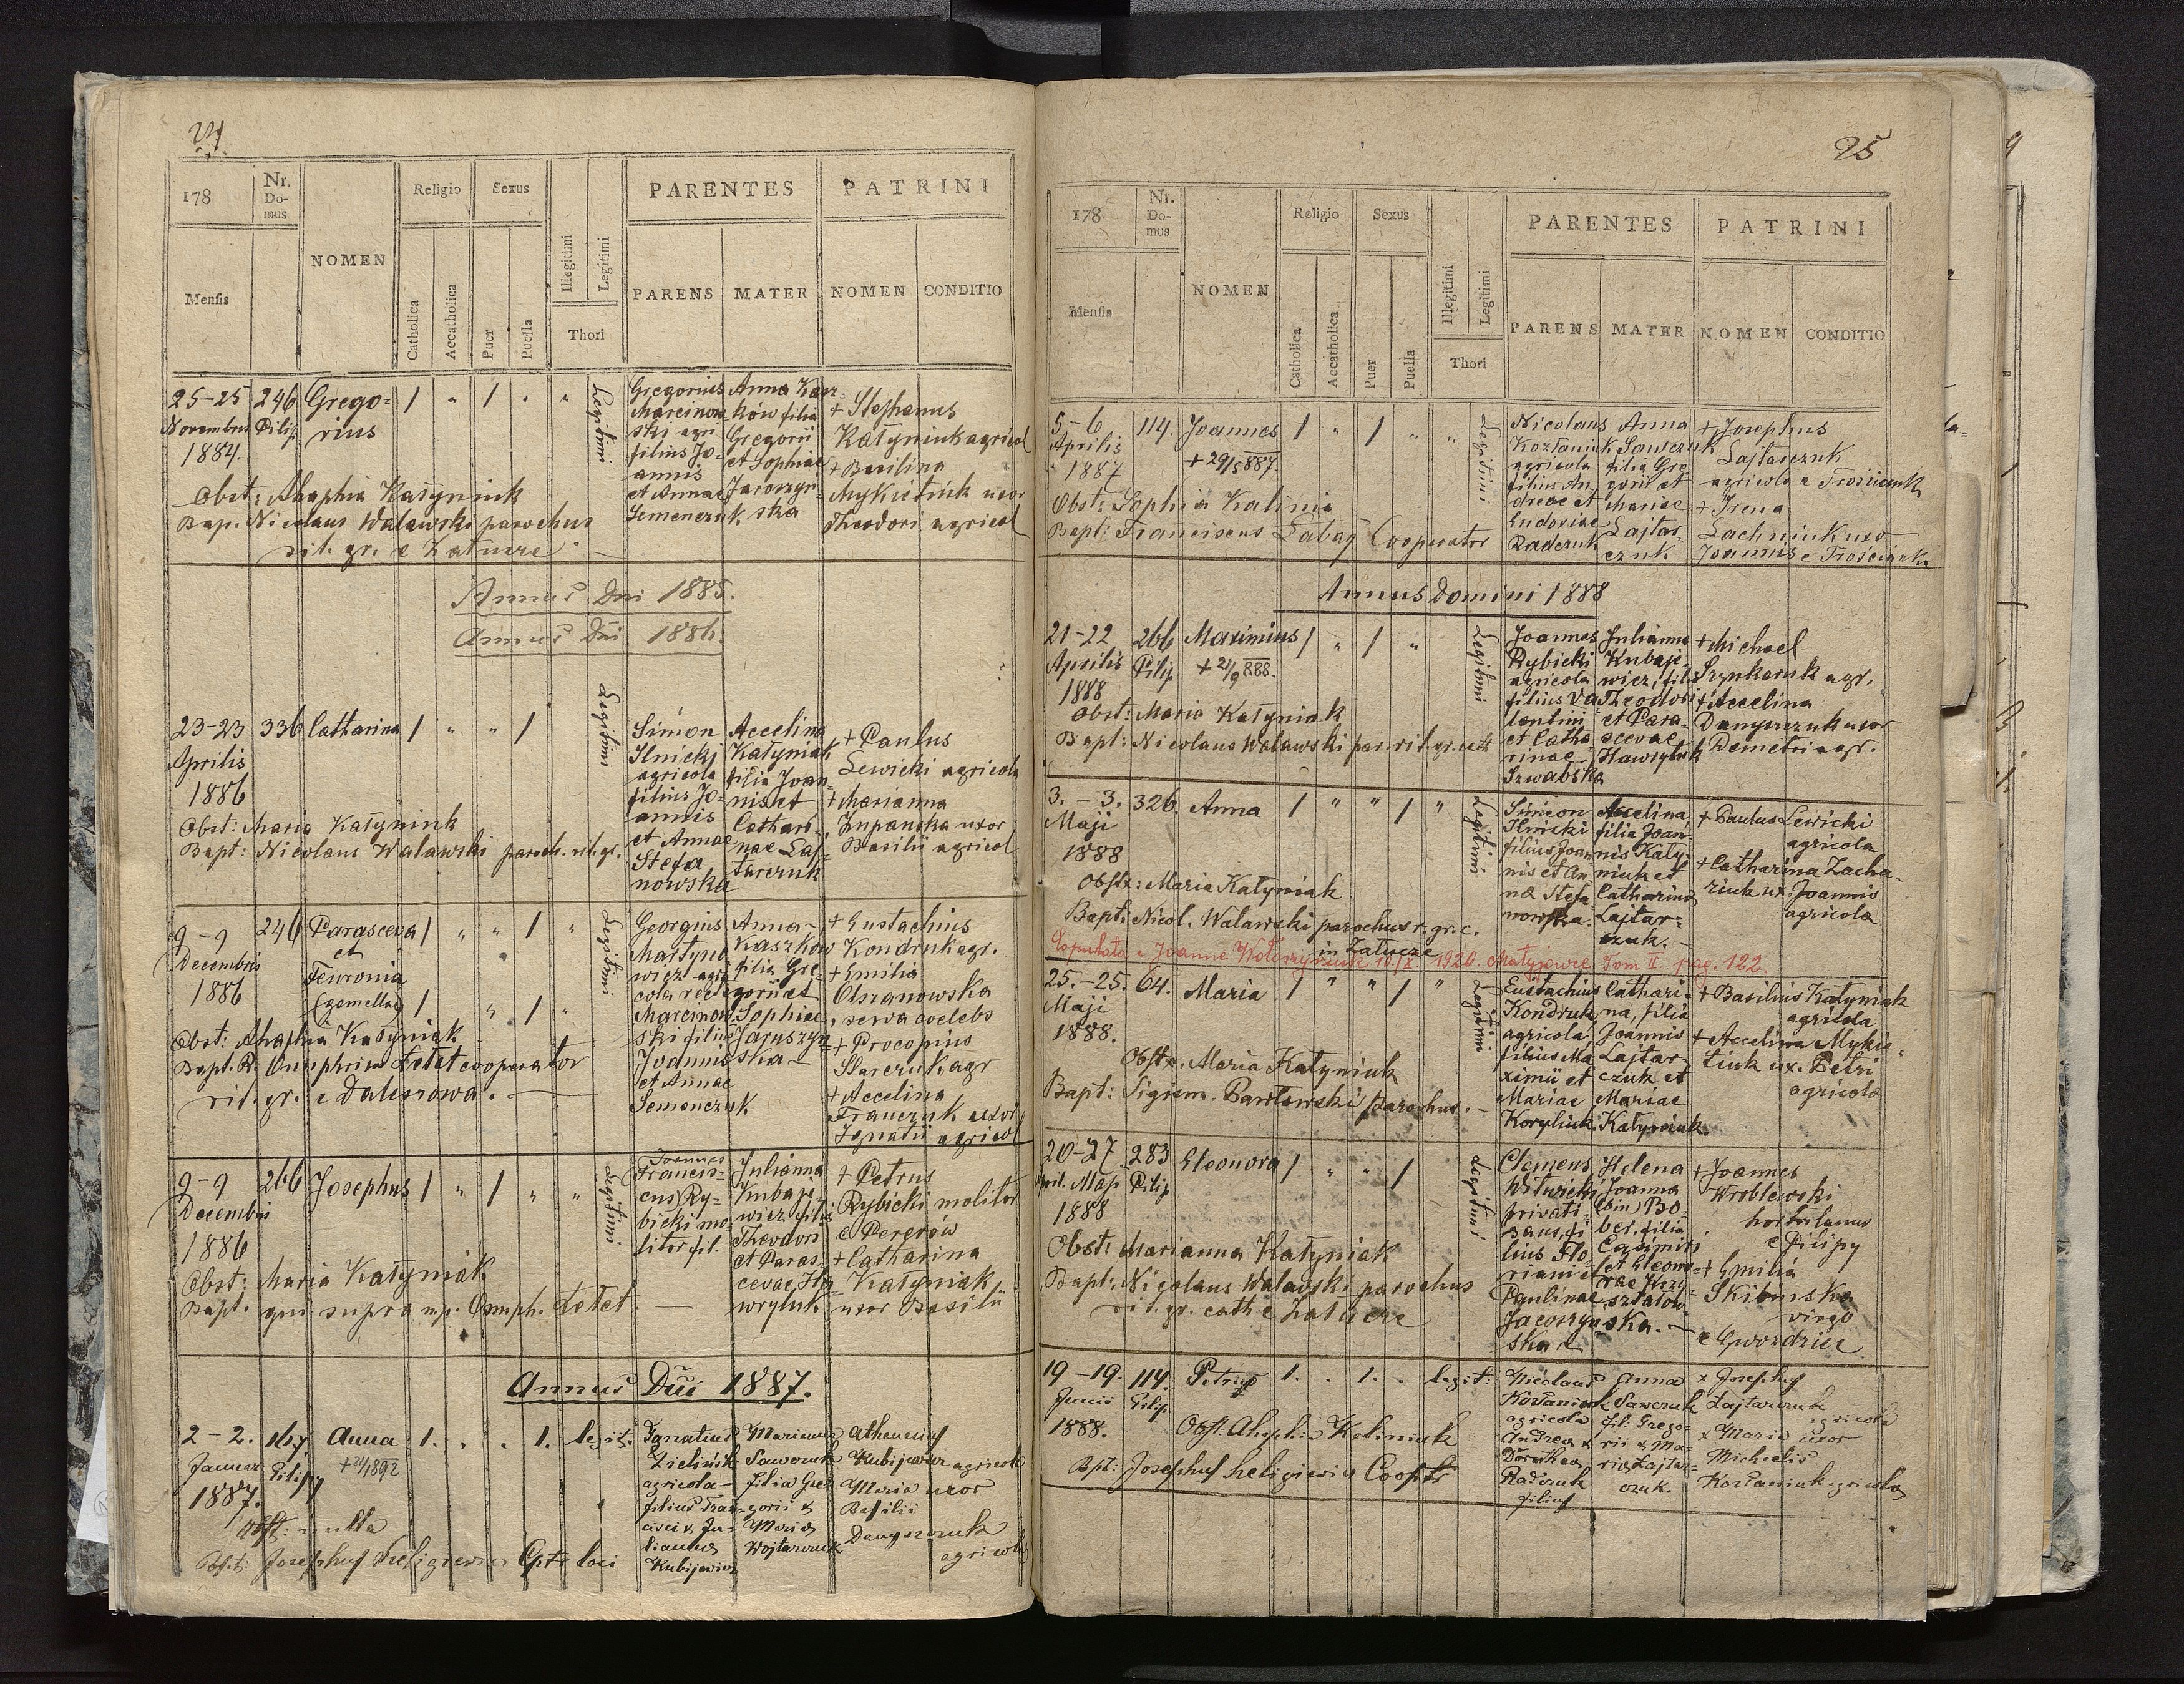 24.
178
Nr. Domus
NOMEN
Religio
Sexus
Illegitimi
Legitimi
Thori
PARENTES
PATRINI
Mensis
Catholica
Accatholica
Puer
Puella
PARENS
MATER
NOMEN
CONDITIO
25-25 Novembris 1884.
246 Pilip
Gregorius
1 " 1 " "
Legitimi
Gregorius
Marcinow
ski agri
filius Jo-
annis
et Annae
Semenczuk
Anna Kasz-
ków filia
Gregorii
et Sophiae
Jaroszyn-
ska
+ Stephanus
Katyniuk agricol
+ Basilina
Mykietiuk uxor
Theodori agricol
Obst: Ahaphia Katyniuk
Bap. Nicolaus Walawski parochus
rit. gr. e Zatucze
Annus Dni 1885.
Annus Dni 1886.
23-23
Aprilis
1886
336
Catharina
1 " " 1
Legitimi
Simon
Ilnicki
agricola
filius Jo-
annis
et Annae
Stefa
nowska
Accelina
Katyniak
filia Joan-
nis et
Cathari-
nae Laj-
tarczuk
+ Paulus
Lewicki agricola
+ Marianna
Zupanska uxor
Basilii agricol
Obst: Maria Katyniuk
Bapt: Nicolaus Walawski paroch. rit. gr.
9-9
Decembris
1886
246
Parasceva
et
Fevronia
(gemellae)
1 " " 1 "
1 " 1 "
Legitimi
Georgius
Martyno
wicz agri
cola recte
Marcinow
ski filius
Joannis
et Annae
Semenczuk
Anna
Kaszków
filia Gre-
gorii et
Sophiae
Jaruszyn
ska
+ Eustachius
Kondruk agr.
+ Emilia
Olszanowska
serva coelebs
+ Procopius
Slarczuk agr
+ Accelina
Franczuk uxor
Ignatii agricol
Obst: Ahaphia Katyniak
Bapt. R. Onuphrius Letet cooperator
rit. gr. e Daleszowa.
9-9
Decembris
1886
266
Josephus
1 " 1 " "
Legitimi
Joannes
Francis-
cus Ry-
bicki mo-
litor fil.
Julianna
Kubaje-
wicz filia
Theodori
et Paras-
cevae Ha-
wryluk
+ Petrus
Rybicki molitor
e Pererów
+ Catharina
Katyniak
uxor Basilii
Obst: Maria Katyniak
Bapt. qui supra mp. Onuph. Letet
Annus Dni 1887.
2-2.
Januar
1887.
167
Pilipy
Anna
+ 21/1 892
1. . . 1. legit.
Ignatius
Zielinik
agricola
filius Fran-
cisci &
Ju-
lianna
Kubijewicz
Marianna
Sawczuk
filia Gre
gorii &
Maria
Wojtarczuk
Athenasius
Kubijewicz agricola
Maria uxor
Basilii
Danyszczuk
agricola
Obst: nulla
Bpt: Josephus Seligiewicz Cptr loci
25
178
Nr. Domus
NOMEN
Religio
Sexus
Illegitimi
Legitimi
Thori
PARENTES
PATRINI
Mensis
Catholica
Accatholica
Puer
Puella
PARENS
MATER
NOMEN
CONDITIO
5-6
Aprilis
1887
114.
Joannes
+ 29/5 887.
1 " 1 " "
Legitimi
Nicolaus
Kozłaniuk
agricola
filius An-
dreae et
Eudoxiae
Radczuk
Anna
Sawczuk
filia Gre
gorii et
Mariae
Lajtar-
czuk
+ Josephus
Lajtarczuk
agricola e Trościanki
+ Irena
Lachniuk uxo
Joannis e Trościanki
Obst: Sophia Kalinia
Bapt: Franciscus Łabaj Cooperator
Annus Domini 1888
21-22
Aprilis
1888
266
Pilip
Maximius
+ 21/9 888.
1 " 1 "
Legitimi
Joannes
Rybicki
agricola
filius Va
lentini
et Catha
rinae
Szwabska
Julianna
Kubaje-
wicz, fil.
Theodori
et Para-
scevae
Hawryluk
+ Michael
Szynkaruk agr.
+ Accelina
Danyszczuk uxor
Demetri agr.
Obst: Maria Katyniak
Bapt: Nicolaus Walawski par. rit. gr. cath
3.-3.
Maji
1888
326.
Anna
1 " " 1 "
Legitimi
Simeon
Ilnicki
filius Joan
nis et An
na Stefa
nowska.
Accelina
filia Joan-
nis Katy-
niuk et
Catharina
Lajtar-
czuk.
+ Paulus Lewicki
agricola
+ Catharina Zacha-
riuk ux. Joannis
agricola
Obstx: Maria Katyniak
Bapt: Nicol. Walawski parochus r. gr. c.
in Zatucze
Copulata c Joanne 10/X 1920. Matyjowce Tom II. pag. 122.
25.-25.
Maji
1888.
64.
Maria
1 " " 1 "
Legitimi
Eustachius
Kondruk
agricola,
filius Ma
ximii et
Mariae
Koryluk
Cathari-
na, filia
Joannis
Lajtar-
czuk et
Mariae
Katyniuk.
+ Basilius Katyniak
agricola
+ Accelina Mykie-
tiuk ux. Petri
agricola
Obstx: Maria Katyniuk
Bapt: Sigism. Pawłowski parochus.
20-27
April. Maji
1888
283
Pilip
Eleonora
1 " " 1
Legitimi
Clemens
Witwicki
privati-
zans, fi
lius Flo
riani et
Paulinae
Jaworzyn
ska
Helena
Joanna
(bin) Bo-
ber. filia
Casimiri
et Eleono-
rae Krzy-
ształow-
ska.
+ Joannes
Wroblewski
hortulanus
e Pilipy
+ Emilia
Skibinska
virgo
e Gwozdziec
Obst: Marianna Katyniak
Bapt: Nicolaus Walawski parochus
rit. gr. cath e Zatucze
19-19.
Junii
1888.
114.
Pilip.
Petrus
1. . 1. . legit:
Nicolaus
Kozłaniuk
agricola
Andrea &
Dorothea
Radczuk
filius
Anna
Sawczuk
fil: Grego-
rii & Ma-
ria Lajtar-
czuk.
x Josephus
Lajtarczuk
agricola
x Maria uxor
Michaelis
Kozłaniuk agricola
Obst: Ahaphia Kaliniuk
Bpt: Josephus Seligiewicz Cooptr